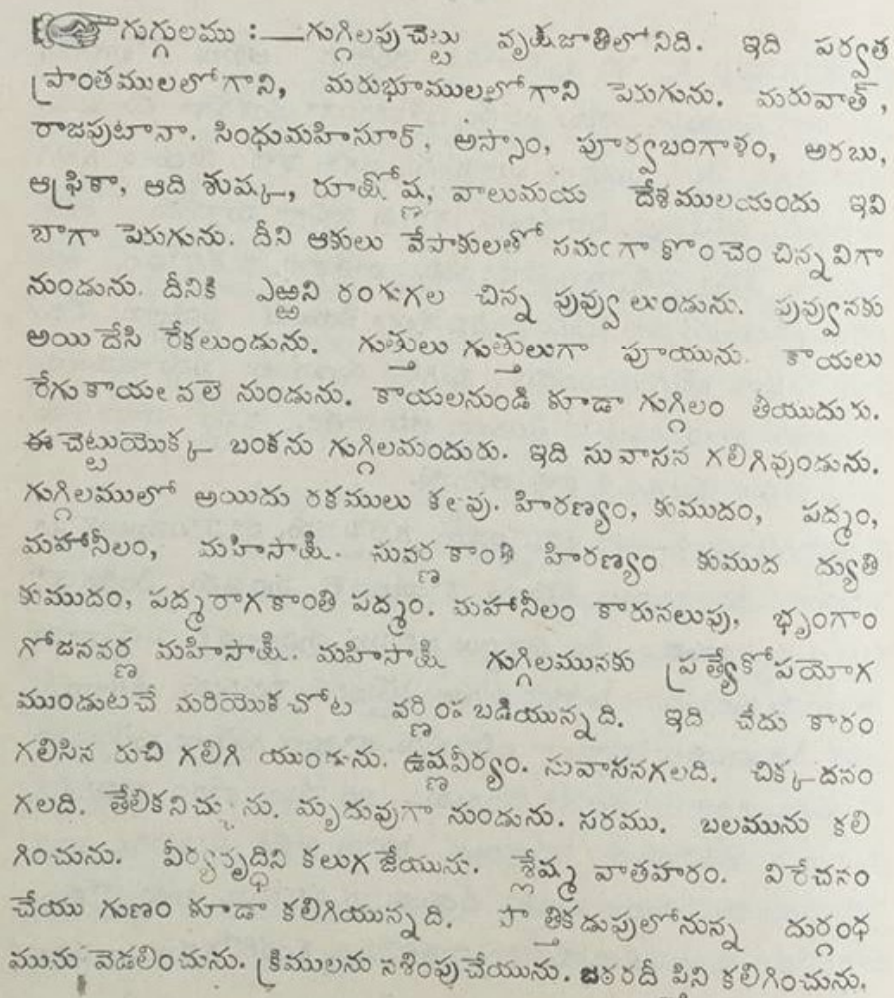 గుగ్గులము :—గుగ్గిలపుచెట్టు వృక్షజాతిలోనిది. ఇది పర్వత
ప్రాంతములలోగాని, మరుభూములలోగాని పెరుగును. మరువాత్,
రాజపుటానా. సింధుమహిసూర్, అస్సాం, పూర్వబంగాళం, అరబు,
ఆఫ్రికా, ఆది శుష్క, రూక్షోష్ణ, వాలుమయ దేశములయందు ఇవి
బాగా పెరుగును. దీని ఆకులు వేపాకులతో సమంగా కొంచెం చిన్నవిగా
నుండును. దీనికి ఎఱ్ఱని రంగుగల చిన్న పువ్వులుండును. పువ్వునకు
అయిదేసి రేకలుండును. గుత్తులు గుత్తులుగా పూయును. కాయలు
రేగుకాయల వలె నుండును. కాయలనుండి కూడా గుగ్గిలం తీయుదురు.
ఈ చెట్టుయొక్క బంకను గుగ్గిలమందురు. ఇది సువాసన గలిగివుండును.
గుగ్గిలములో అయిదు రకములు కలవు. హిరణ్యం, కుముదం, పద్మం,
మహానీలం, మహిసాక్షి. సువర్ణకాంతి హిరణ్యం కుముద ద్యుతి
కుముదం, పద్మరాగకాంతి పద్మం. మహానీలం కారునలుపు, భృంగాం
గోజనవర్ణ మహిసాక్షి. మహిసాక్షి గుగ్గిలమునకు ప్రత్యేకోపయోగ
ముండుటచే మరియొకచోట వర్ణింపబడియున్నది. ఇది చేదు కారం
గలిసిన రుచి గలిగి యుండును. ఉష్ణవీర్యం. సువాసనగలది. చిక్కదనం
గలది. తేలికనిచ్చును. మృదువుగా నుండును. సరము. బలమును కలి
గించును. వీర్యవృద్ధిని కలుగజేయును. శ్లేష్మ వాతహరం. విరేచనం
చేయు గుణం కూడా కలిగియున్నది. పొత్తికడుపులోనున్న దుర్గంధ
మును వెడలించును. క్రిములను నశింపుచేయును. జఠరదీప్తిని కలిగించును.